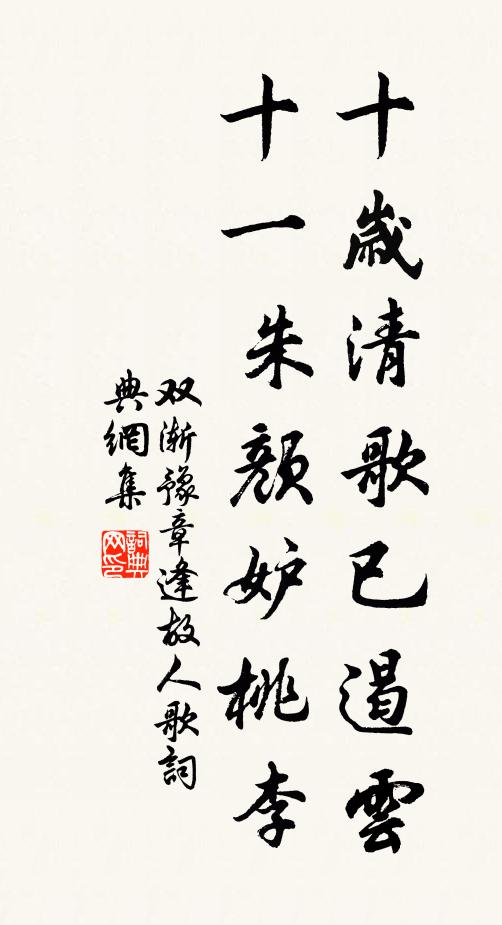 十歲清歌已遏雲
十一朱顏妒桃李
双渐豫章逢故人歌詞
典網集
詞典
网印